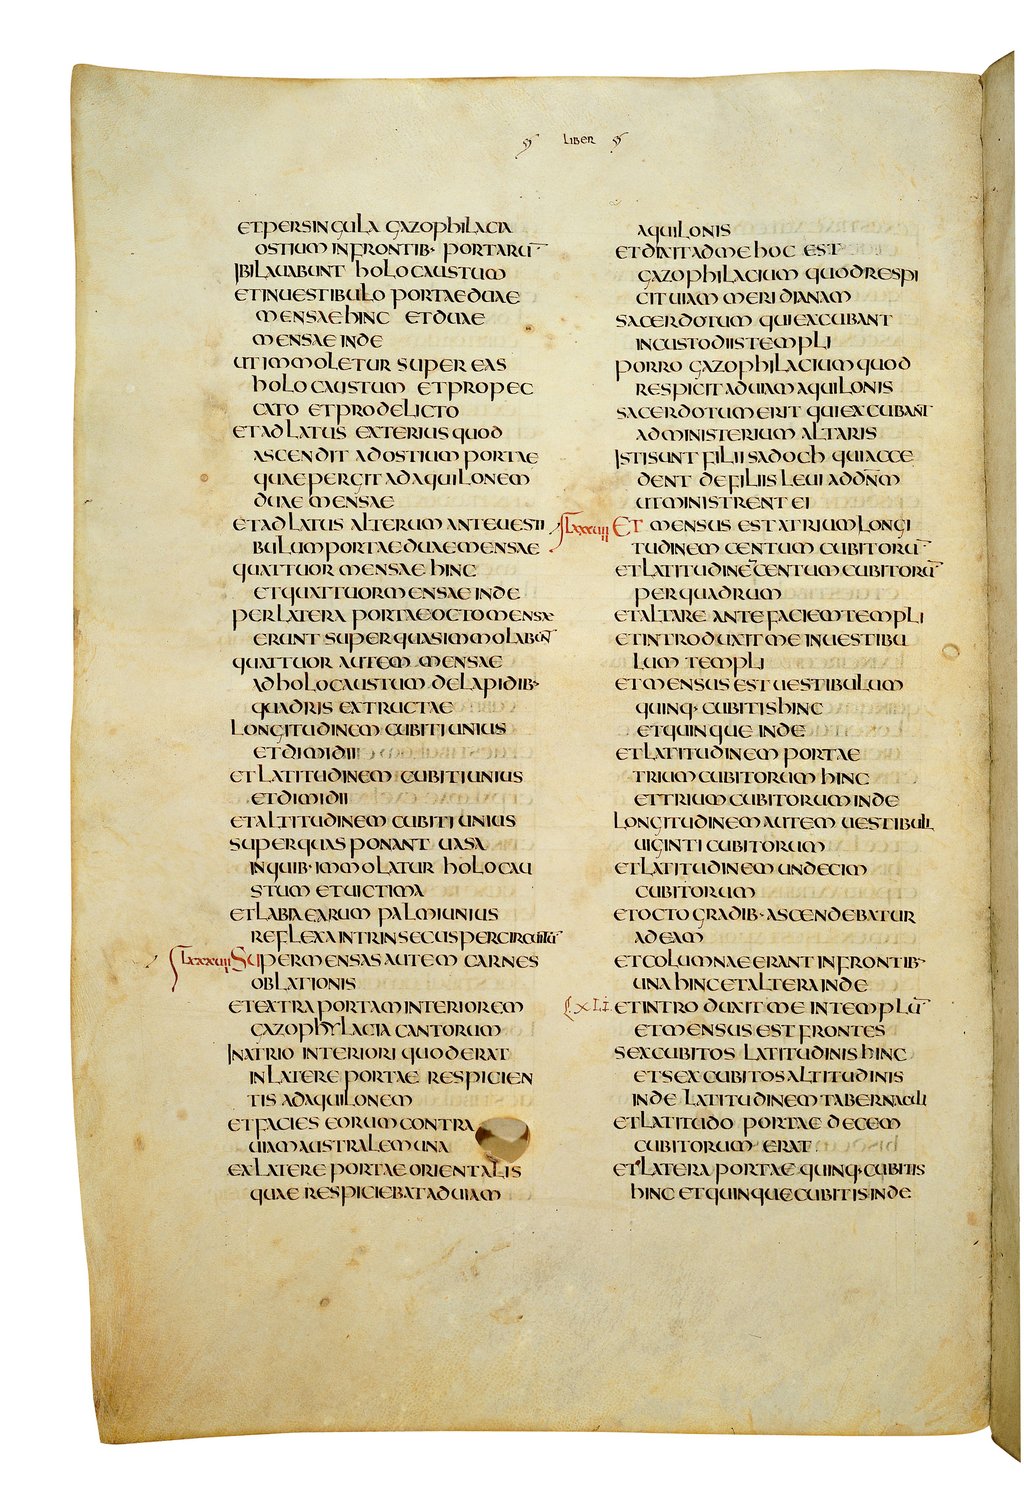 LIBER
ET PER SINGULA GAZOPHILACIA
OSTIUM IN FRONTIB· PORTARŪ
IBI LAUABUNT HOLOCAUSTUM
ET IN UESTIBULO PORTAE DUAE
MENSAE HINC ET DUAE
MENSAE INDE
UT IMMOLETUR SUPER EAS
HOLOCAUSTUM ET PRO PEC
CATO ET PRO DELICTO
ET AD LATUS EXTERIUS QUOD
ASCENDIT AD OSTIUM PORTAE
QUAE PERGIT AD AQUILONEM
DUAE MENSAE
ET AD LATUS ALTERUM ANTE UESTI
BULUM PORTAE DUAE MENSAE
QUATTUOR MENSAE HINC
ET QUATTUOR MENSAE INDE
PER LATERA PORTAE OCTO MENSAE
ERUNT SUPER QUAS IMMOLABUNT
QUATTUOR AUTEM MENSAE
AD HOLOCAUSTUM DE LAPIDIB·
QUADRIS EXTRUCTAE
LONGITUDINEM CUBITI UNIUS
ET DIMIDII
ET LATITUDINEM CUBITI UNIUS
ET DIMIDII
ET ALTITUDINEM CUBITI UNIUS
SUPER QUAS PONANT UASA
IN QUIB· IMMOLATUR HOLOCAU
STUM ET UICTIMA
ET LABIA EARUM PALMI UNIUS
REFLEXA INTRINSECUS PER CIRCUITŪ
LXXXVIII SUPER MENSAS AUTEM CARNES
OBLATIONIS
ET EXTRA PORTAM INTERIOREM
GAZOPHYLACIA CANTORUM
IN ATRIO INTERIORI QUOD ERAT
IN LATERE PORTAE RESPICIEN
TIS AD AQUILONEM
ET FACIES EORUM CONTRA
UIAM AUSTRALEM UNA
EX LATERE PORTAE ORIENTALIS
QUAE RESPICIEBAT AD UIAM
AQUILONIS
ET DIXIT AD ME HOC EST
GAZOPHILACIUM QUOD RESPI
CIT UIAM MERIDIANAM
SACERDOTUM QUI EXCUBANT
IN CUSTODIIS TEMPLI
PORRO GAZOPHILACIUM QUOD
RESPICIT AD UIAM AQUILONIS
SACERDOTUM ERIT QUI EXCUBANT
AD MINISTERIUM ALTARIS
ISTI SUNT FILII SADOCH QUI ACCE
DENT DE FILIIS LEUI AD DN̄M
UT MINISTRENT EI
LXXXVIIII ET MENSUS EST ATRIUM LONGI
TUDINEM CENTUM CUBITORŪ
ET LATITUDINĒ CENTUM CUBITORŪ
PER QUADRUM
ET ALTARE ANTE FACIEM TEMPLI
ET INTRODUXIT ME IN UESTIBU
LUM TEMPLI
ET MENSUS EST UESTIBULUM
QUINQ· CUBITIS HINC
ET QUINQUE INDE
ET LATITUDINEM PORTAE
TRIUM CUBITORUM HINC
ET TRIUM CUBITORUM INDE
LONGITUDINEM AUTEM UESTIBULI
UIGINTI CUBITORUM
ET LATITUDINEM UNDECIM
CUBITORUM
ET OCTO GRADIB· ASCENDEBATUR
AD EAM
ET COLUMNAE ERANT IN FRONTIB·
UNA HINC ET ALTERA INDE
XLI ET INTRODUXIT ME IN TEMPLŪ
ET MENSUS EST FRONTES
SEX CUBITOS LATITUDINIS HINC
ET SEX CUBITOS ALTITUDINIS
INDE LATITUDINEM TABERNACULI
ET LATITUDO PORTAE DECEM
CUBITORUM ERAT
ET LATERA PORTAE QUINQ· CUBITIS
HINC ET QUINQUE CUBITIS INDE